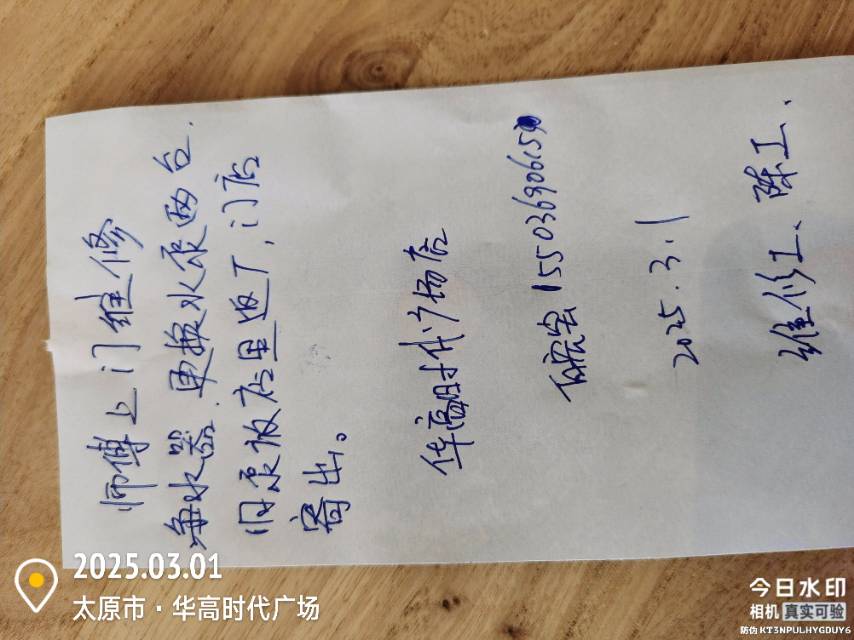 师傅上门维修
海水器.更换水泵两台.
旧泵被店里返厂,门店
寄出。
华高时代广场店
15503690615
2025.3.1
维修工、陈工、
2025.03.01
太原市·华高时代广场
今日水印
相机 真实可验
防伪 KT3NPULHYGDUY6